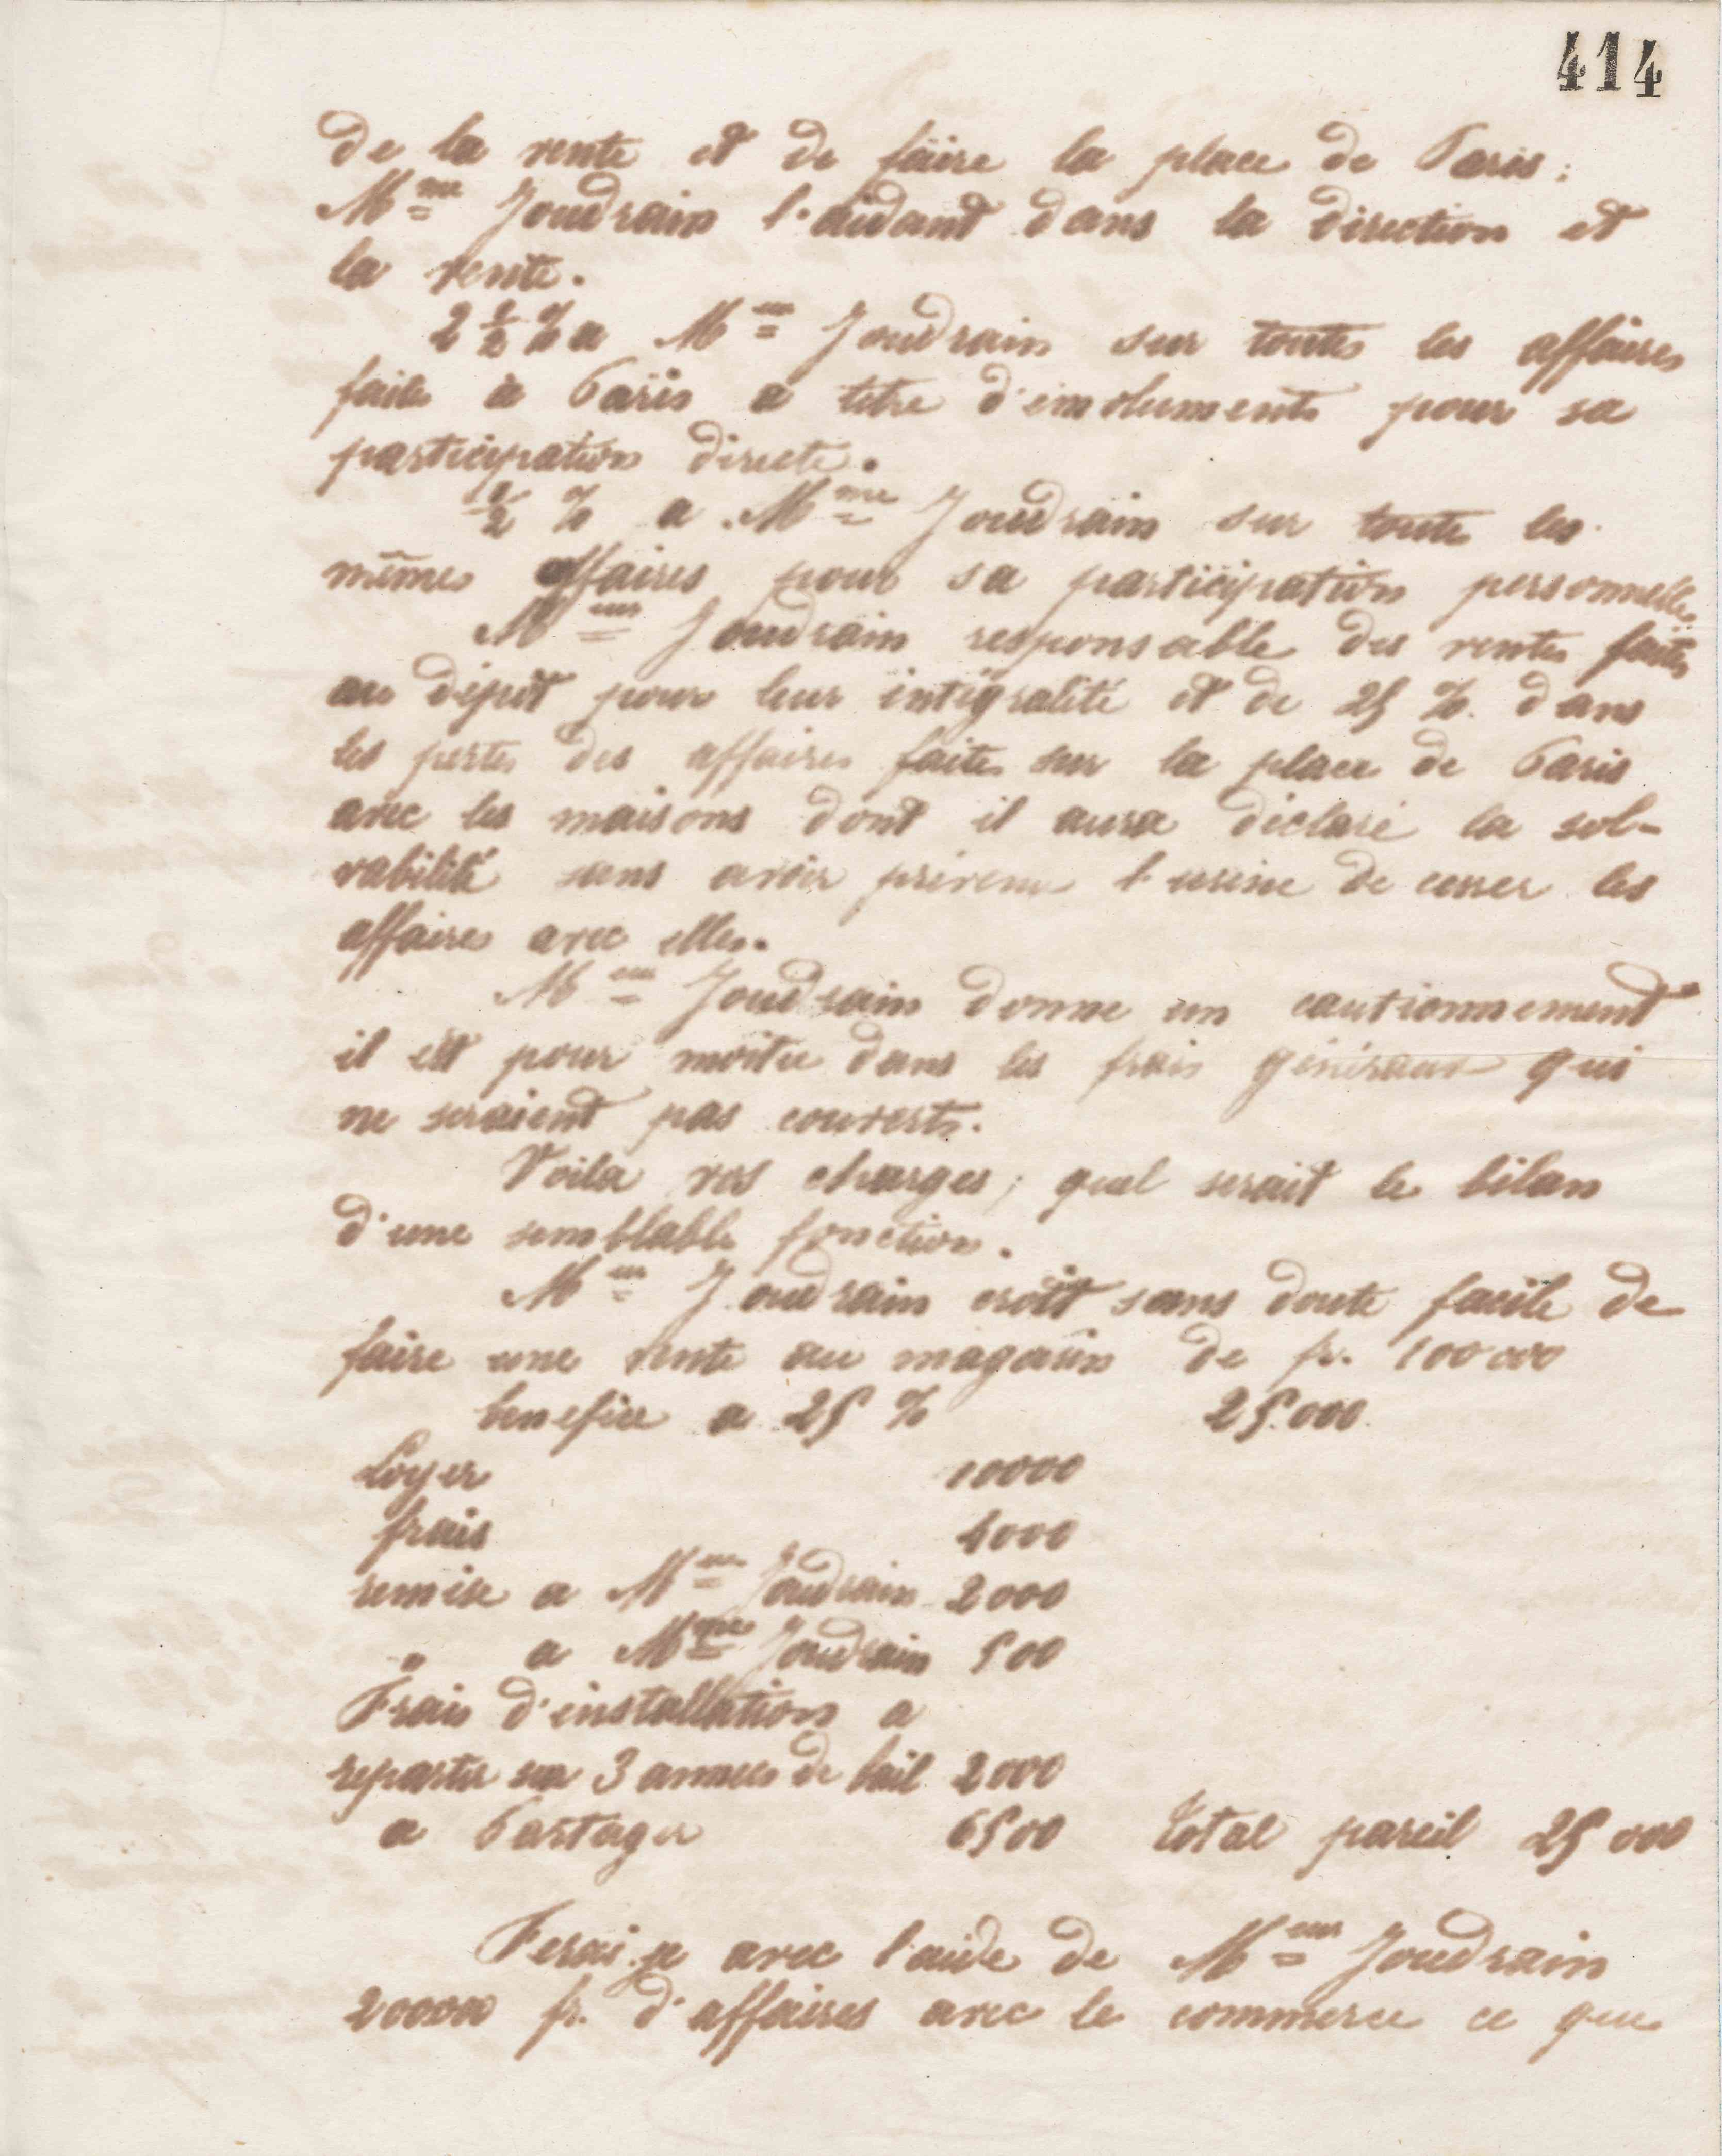 414
de la vente et de faire la place de Paris;
Mme Joudrain l'aidant dans la direction et
la vente.
2 1/2 % a Meur Joudrain sur toutes les affaires
faite à Paris a titre d'émoluments pour sa
participation directe.
1/2 % a Mme Joudrain sur toute les
mêmes affaires pour sa participation personnelle.
Meur Joudrain responsable des ventes faites
au dépôt pour leur intégralité et de 25 %. dans
les pertes des affaires faites sur la place de Paris
avec les maisons dont il aura déclaré la sol-
vabilité sans avoir prévenu l'usine de cesser les
affaires avec elles.
Meur Joudrain donne un cautionnement
il est pour moitie dans les frais généraux qui
ne seraient pas couverts.
Voila vos charges; quel serait le bilan
d'une semblable fonction.
Meur Joudrain croit sans doute facile de
faire une vente au magasin de fr. 100 000
benefice a 25 % 25.000.
Loyer 10000
frais 4000
remise a Meur Joudrain 2000
" a Mme Joudrain 500
Frais d'installation a
repartir sur 3 annees de bail 2000
a Partager 6500 Total pareil 25 000
Ferai-je avec l'aide de Meur Joudrain
200000 fr. d'affaires avec le commerce ce que